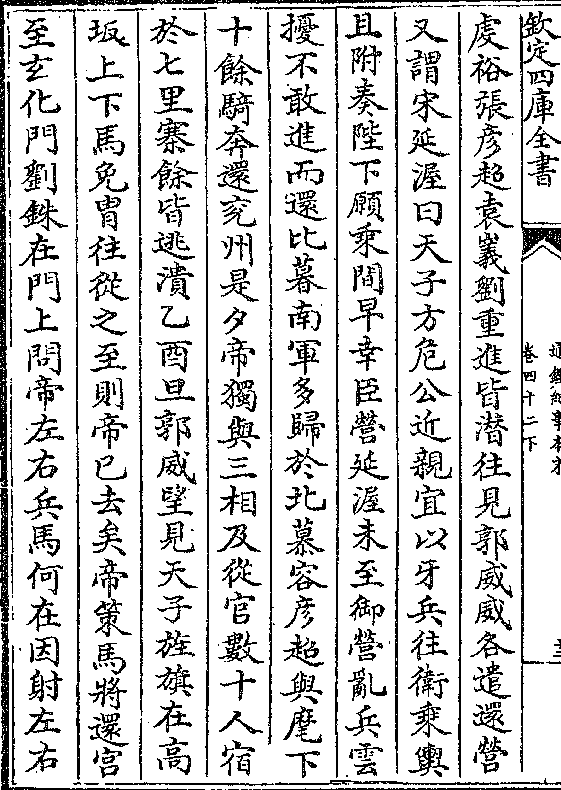 欽定四庫全書
通鑑紀事本末
卷四十二下
虔裕張彦超袁㠖劉重進皆潛往見郭威威各遣還營
又謂宋延渥曰天子方危公近親宜以牙兵往衛乘輿
且附奏陛下願乘間早幸臣營延渥未至御營亂兵雲
擾不敢進而還比暮南軍多歸於北慕容彦超與麾下
十餘騎奔還兖州是夕帝獨與三相及從官數十人宿
於七里寨餘皆逃潰乙酉旦郭威望見天子旌旗在高
坂上下馬免胄往從之至則帝已去矣帝策馬將還宫
至玄化門劉銖在門上問帝左右兵馬何在因射左右